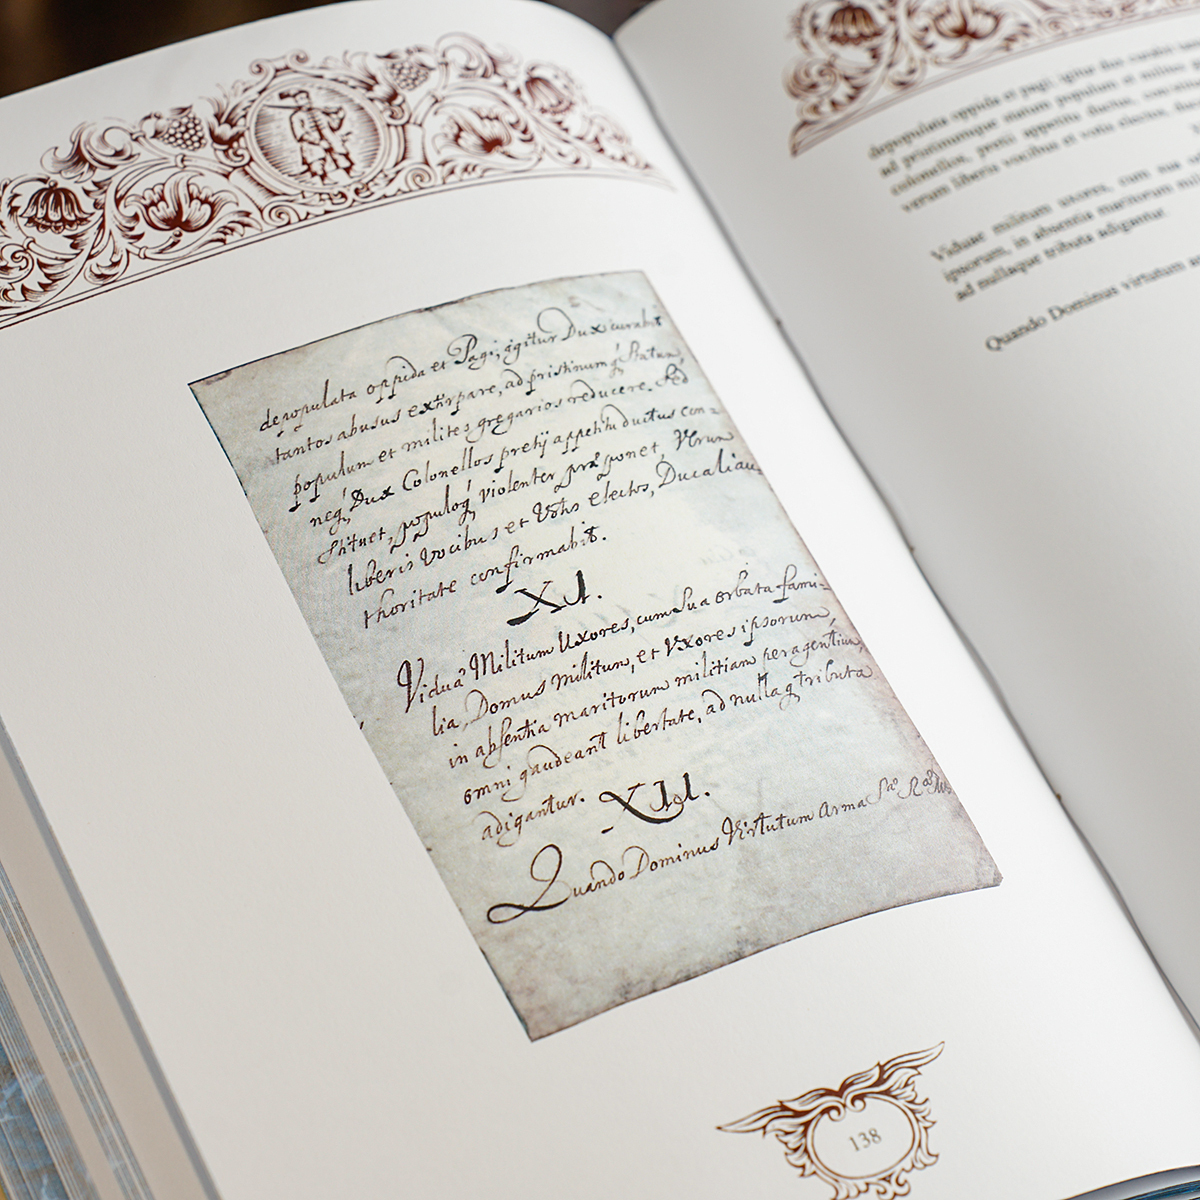 depopulata oppida et Pagi; igitur Dux curabit
tantos abusus extirpare, ad pristinumq́ Statum,
populum et milites gregarios reducere. Sed
neq́, Dux Colonellos pretij appetitu ductus con=
stituet, populoq́ violenter præponet, Verum
liberis vocibus et Votis electos, Ducali au=
thoritate confirmabit.
XI.
Viduæ Militum Uxores, cum Sua orbata fami=
lia, Domus militum, et Uxores ipsorum,
in absentia maritorum militiam peragentium,
omni gaudeant libertate, ad nullaq́ tributa
adigantur.
XII.
Quando Dominus Virtutum Arma
138
depopulata oppida et pagi; igitur dux curabit
ad pristinumque statum populum et milites
colonellos, pretii appetitu ductus,
verum liberis vocibus et votis electos,
Viduae militum uxores, cum sua
ipsorum, in absentia maritorum
ad nullaque tributa adigantur.
Quando Dominus virtutum